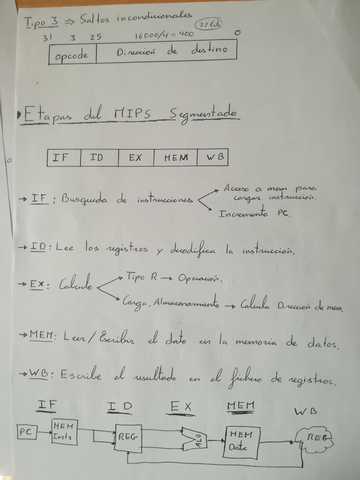 Tipo J ⇒ Saltos incondicionales
31 25 16000/4 = 400 0
opcode Dirección de destino
Etapas del MIPS Segmentado
IF ID EX MEM WB
→ IF: Busqueda de instrucciones Acceso a mem para
cargar instrucción.
Incrementa PC.
→ ID: Lee los registros y decodifica la instrucción.
→ EX: Calculo Tipo R → Operación.
Carga, Almacenamiento → Calcula Dirección de mem.
→ MEM: Leer/Escribir el dato en la memoria de datos.
→ WB: Escribe el resultado en el fichero de registros.
IF ID EX MEM WB
PC MEM Instr REG ALU MEM Data REG